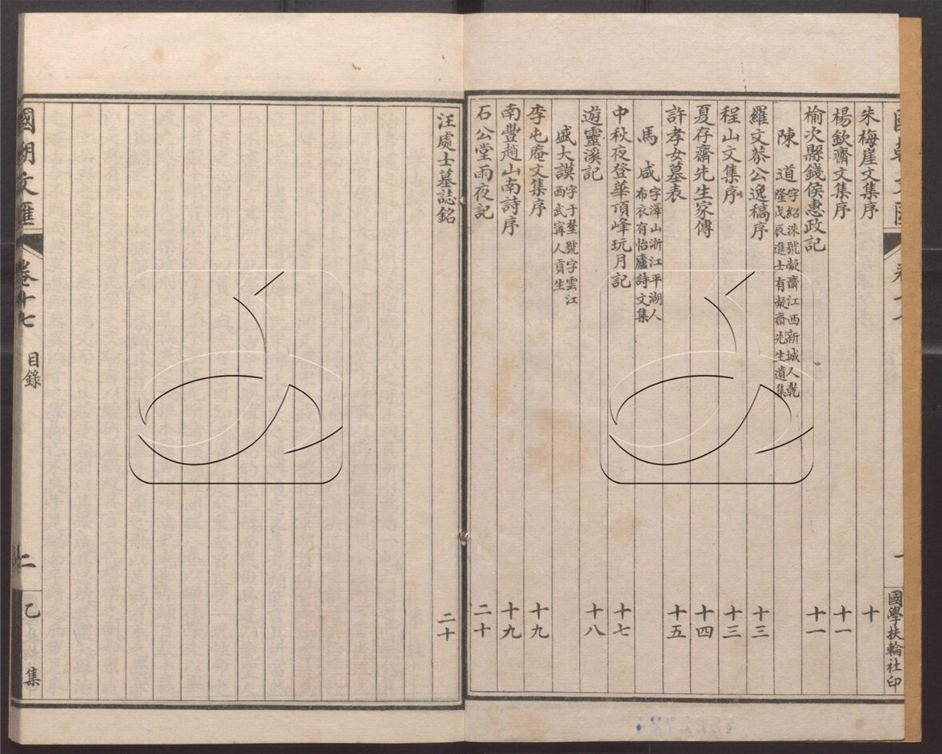 朱梅崖文集序 十
楊欽齋文集序 十一
榆次縣錢侯惠政記 十一
陳道 字紹洙號凝齋江西新城人乾
隆戊辰進士有凝齋先生遺集
羅文恭公逸稿序 十三
程山文集序 十三
夏存齋先生家傳 十四
許孝女墓表 十五
馬咸 字澤山浙江平湖人
布衣有怡廬詩文集
中秋夜登華頂峰玩月記 十七
遊靈溪記 十八
盛大謨 字于埜號字雲江
西武寧人貢生
李屯庵文集序 十九
南豐趙山南詩序 十九
石公堂雨夜記 二十
國學扶輪社印
汪處士墓誌銘 二十
國朝文匯 卷十七 目錄 二 乙集